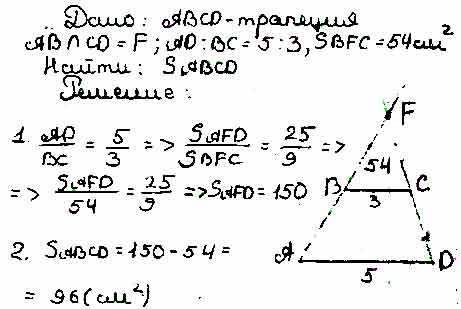 Дано: ABCD-трапеция
AB∩CD=F; AD:BC=5:3, SBFC=54см²
Найти: SABCD
Решение:
1. AD/BC = 5/3 => SAFD/SBFC = 25/9 =>
=> SAFD/54 = 25/9 => SAFD=150
2. SABCD=150-54=
=96(см²)
F
54
B
C
3
A
D
5